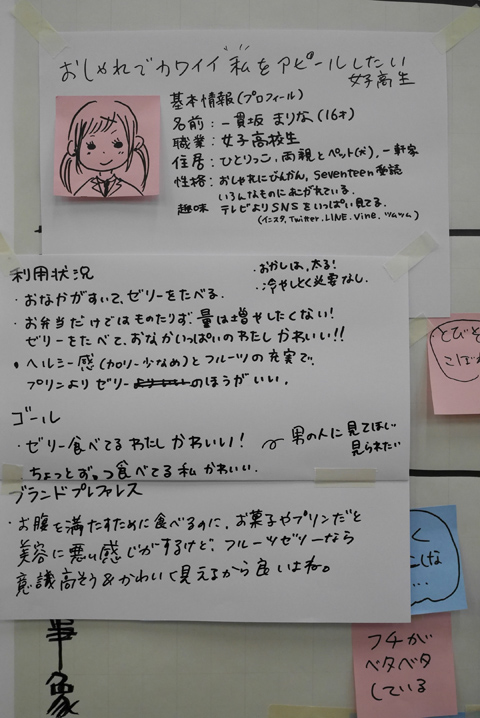 おしゃれでカワイイ私をアピールしたい
女子高生
基本情報(プロフィール)
名前:一貫坂 まりな(16才)
職業:女子高校生
住居:ひとりっこ,両親とペット(犬),一軒家
性格:おしゃれにびんかん,Seventeen愛読
いろんなものにあこがれている.
趣味 テレビよりSNSをいっぱい見てる.
(インスタ,Twitter.LINE.Vine.ツムツム)
利用状況
・おかしは,太る!
・冷やしとく必要なし.
・おなかがすいて,ゼリーをたべる.
・お弁当だけではものたりず,量は増やしたくない!
ゼリーをたべて,おなかいっぱいのわたし かわいい!!
・ヘルシー感(カロリー少なめ)とフルーツの充実で,
プリンよりゼリーのほうがいい.
ゴール
・ゼリー食べてるわたし かわいい!
男の人に見てほしい
見られたい
・ちょっとずつ食べてる私 かわいい.
ブランドプレファレス
・お腹を満たすために食べるのに,お菓子やプリンだと
美容に悪い感じがするけど,フルーツゼリーなら
意識高そう&かわいく見えるから良いよね。
とびそ
こぼれ
く
こしな
...
フチが
ベタベタ
している
事象